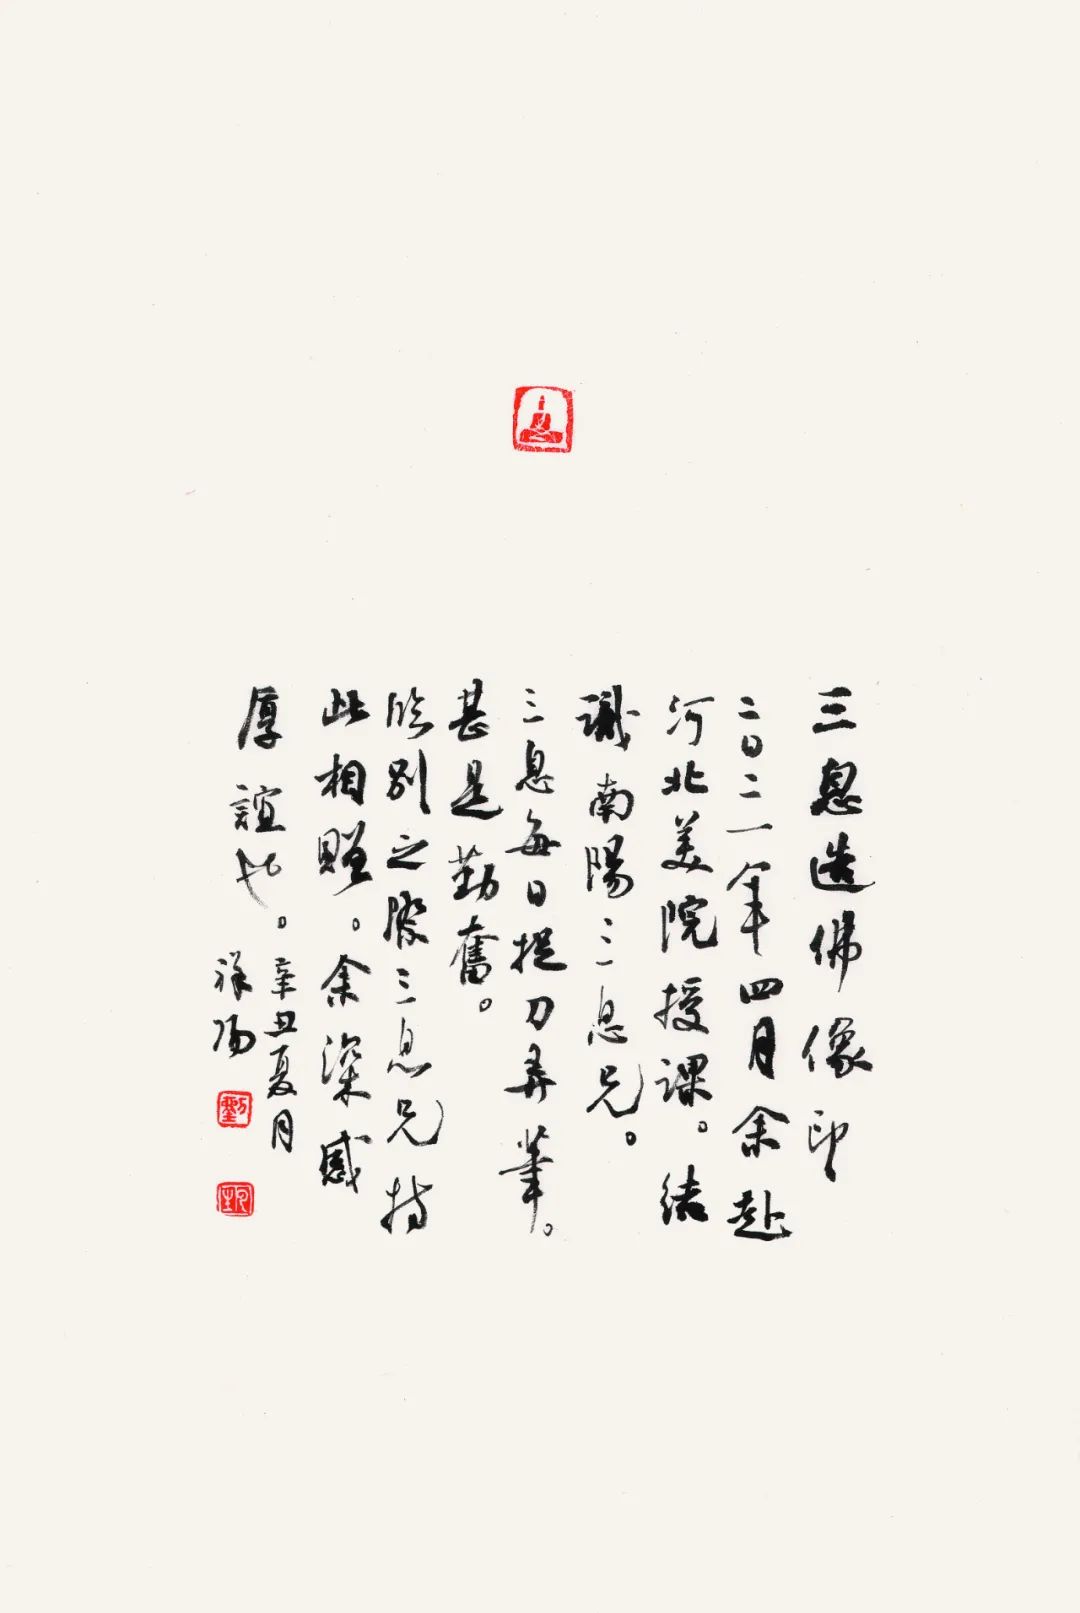 三息造佛像印
二〇二一年四月余赴
河北美院授課。结
識南陽三息兄。
三息每日捉刀弄筆。
甚是勤奮。
临别之際三息兄持
此相贈。余深感
厚誼也。
辛丑夏月
祥陽
劉